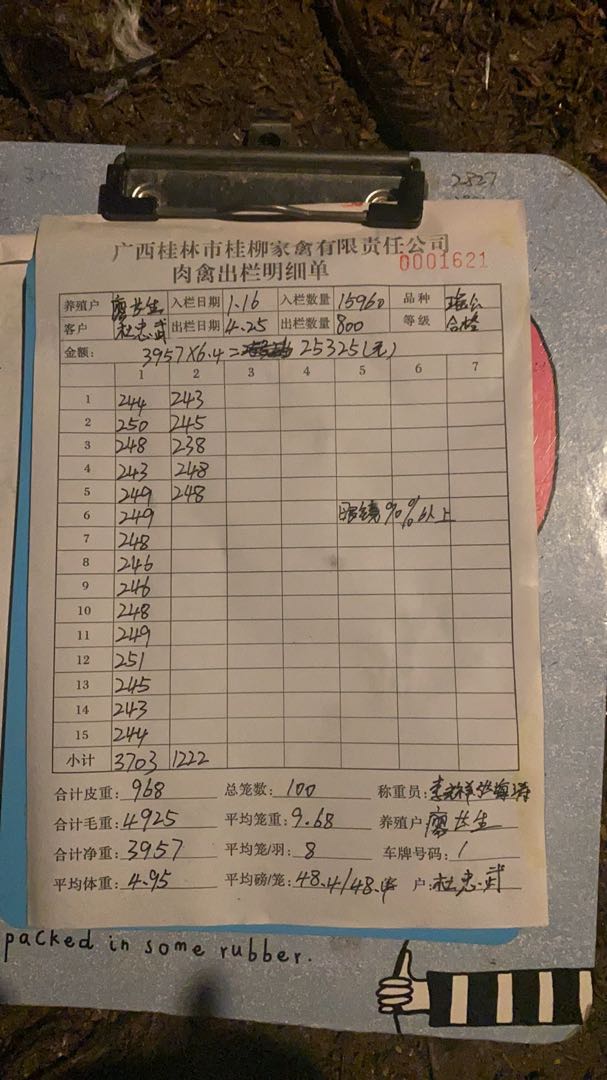 2827
广西桂林市桂柳家禽有限责任公司
肉禽出栏明细单 0001621
养殖户 廖长生 入栏日期 1.16 入栏数量 15960 品种
客户 杜忠武 出栏日期 4.25 出栏数量 800 等级 合格
金额: 3957×6.4= 25325(元)
1 2 3 4 5 6 7
1 244 243
2 250 245
3 248 238
4 243 248
5 249 248
6 249 90%以上
7 248
8 246
9 246
10 248
11 249
12 251
13 245
14 243
15 244
小计 3703 1222
合计皮重: 968 总笼数: 100 称重员:
合计毛重: 4925 平均笼重: 9.68 养殖户: 廖长生
合计净重: 3957 平均笼/羽: 8 车牌号码: /
平均体重: 4.95 平均磅/笼: 48.4/48. 户: 杜忠武
packed in some rubber.